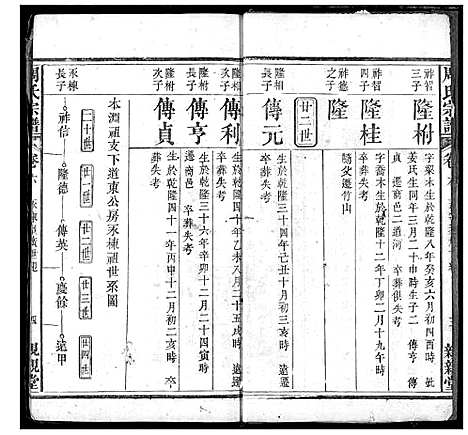 周氏宗譜
親親堂
祚智
三子
隆柎
字榮木生於乾隆八年癸亥六月初四寅時
姜氏生同年三月二十申時生子二 傳亨 傳
貞 遷商邑二道河 卒葬俱失考
祚智
四子
隆桂
字喬木生於乾隆十二年丁卯二月十九午時
卒葬失考
祚德
之子
隆
隨父遷竹山
廿二世
隆相
長子
傳元
生於乾隆三十四年己丑十二月初三亥時 遠遷
卒葬失考
傳利
生於乾隆四十年乙未八月二十五亥時 遠遷
卒葬失考
隆柎
長子
傳亨
生於乾隆三十六年辛卯十二月二十四寅時
遷商邑 卒葬失考
隆柎
次子
傳貞
生於乾隆四十一年丙申十二月初二亥時 卒
葬失考
本淵祖支下道東公房永棟祖世系圖
二十世
廿一世
廿二世
廿三世
廿四世
永棟
長子
祚信
隆德
傳英
慶餘
遠甲
周氏宗譜
卷六
四
親親堂